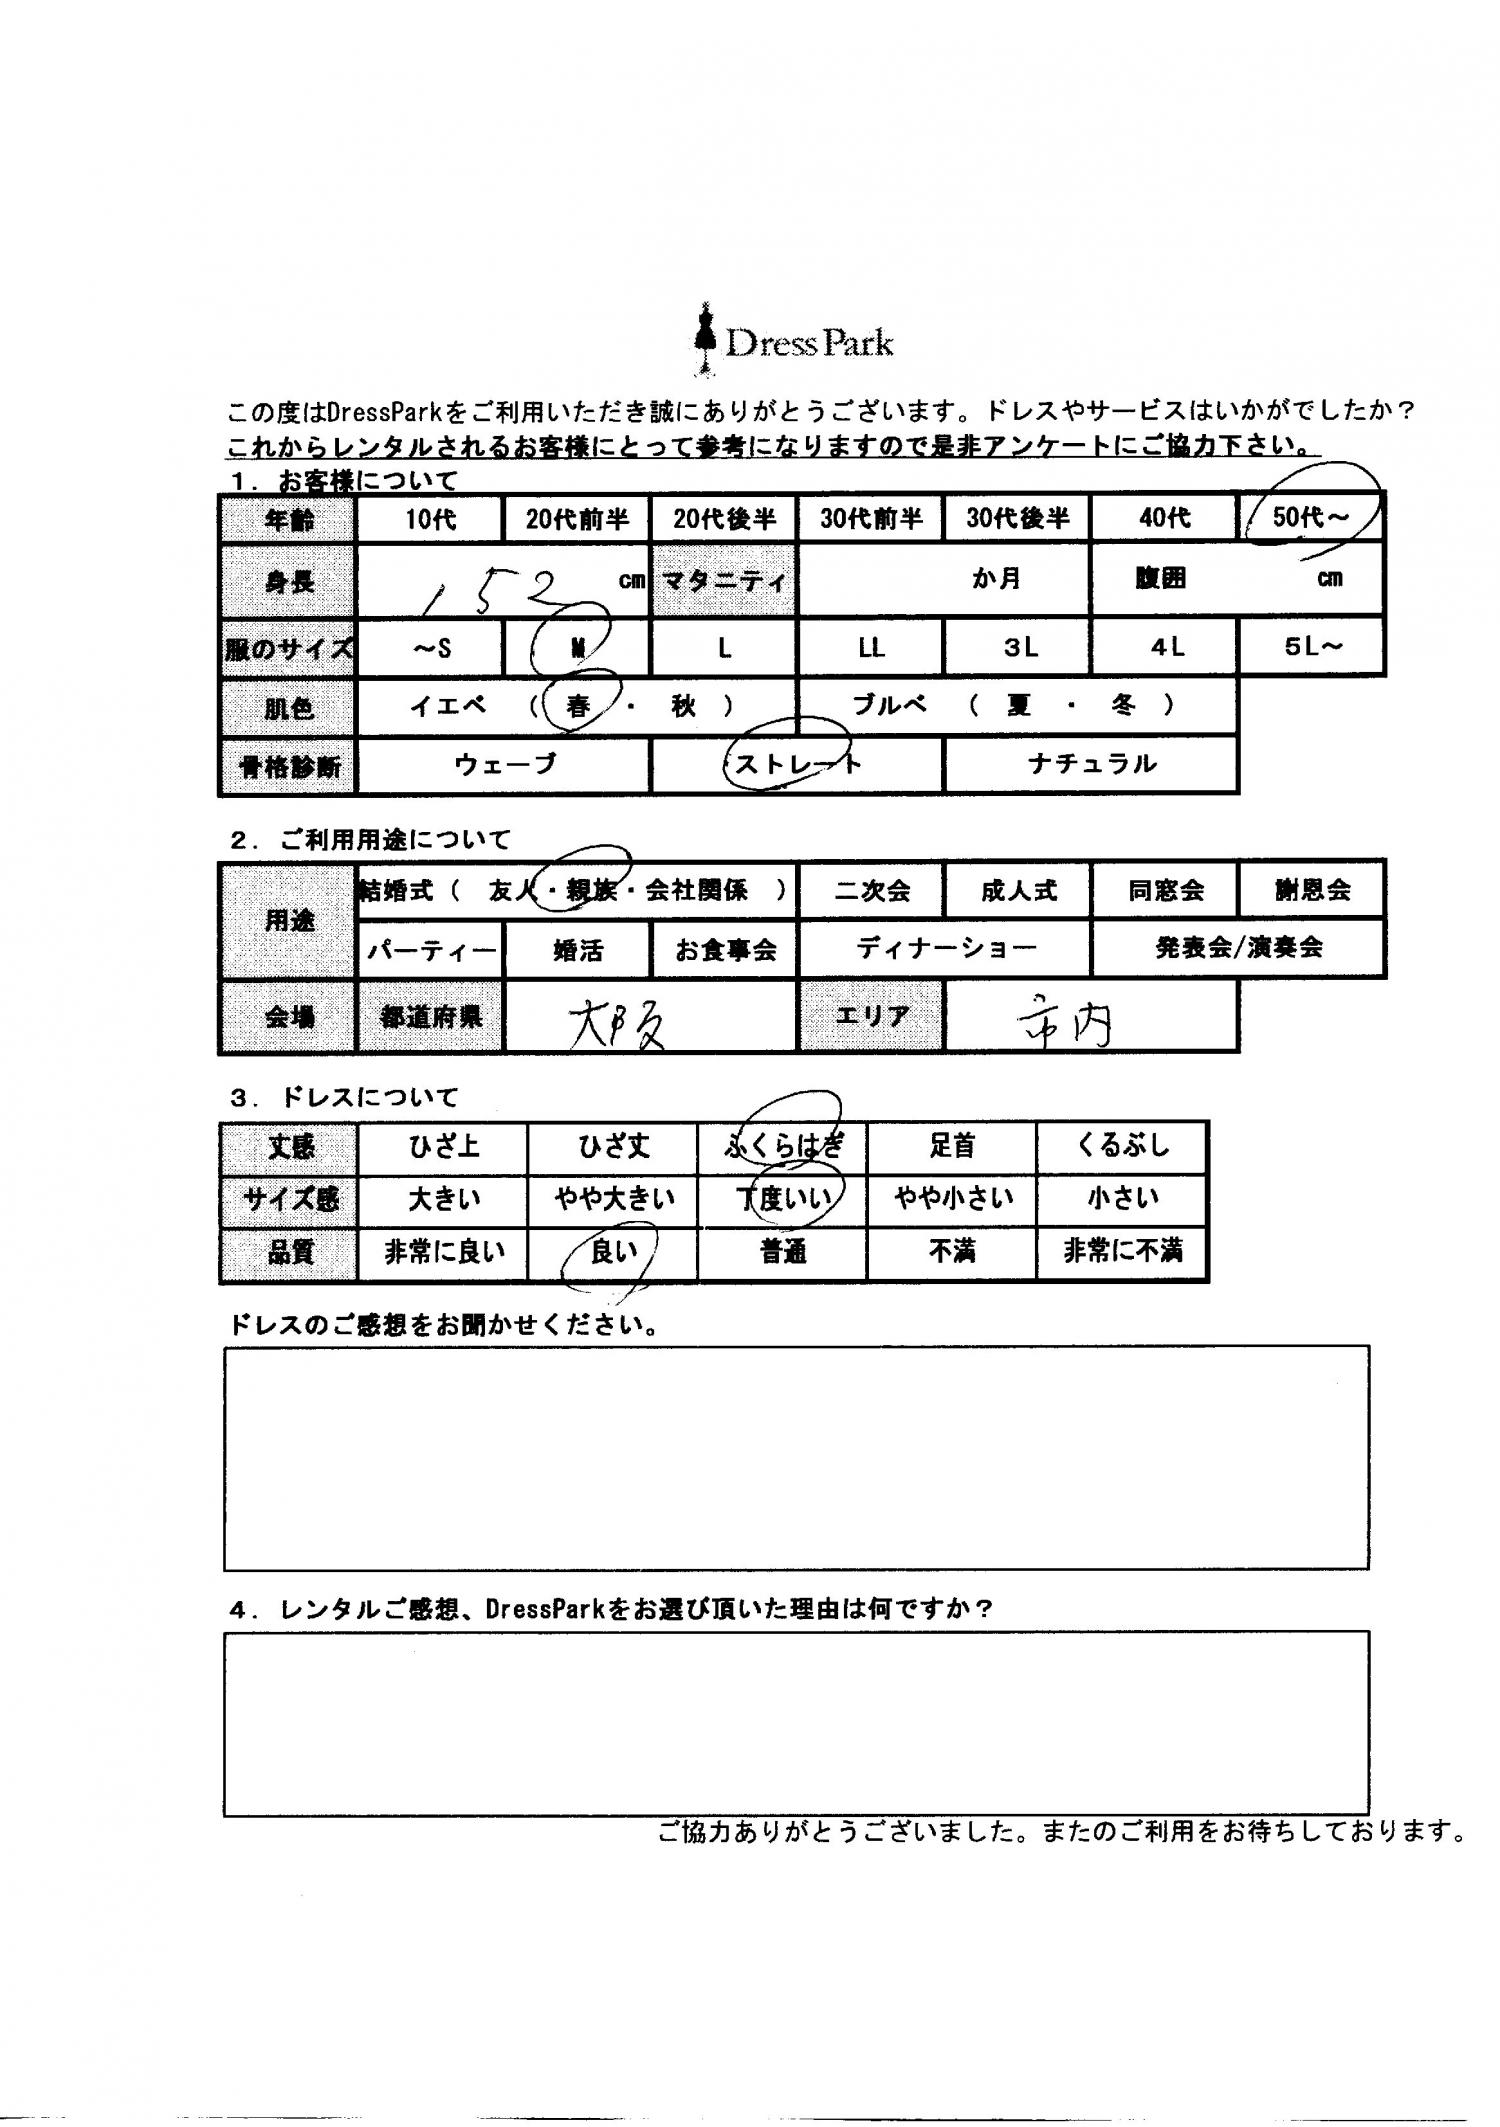 Dress Park
この度はDressParkをご利用いただき誠にありがとうございます。ドレスやサービスはいかがでしたか？
これからレンタルされるお客様にとって参考になりますので是非アンケートにご協力下さい。
１．お客様について
年齢 10代 20代前半 20代後半 30代前半 30代後半 40代 50代～
身長 152 cm マタニティ か月 腹囲 cm
服のサイズ ～S M L LL 3L 4L 5L～
肌色 イエベ （ 春 ・ 秋 ） ブルベ （ 夏 ・ 冬 ）
骨格診断 ウェーブ ストレート ナチュラル
２．ご利用用途について
用途 結婚式（ 友人・親族・会社関係 ） 二次会 成人式 同窓会 謝恩会
パーティー 婚活 お食事会 ディナーショー 発表会/演奏会
会場 都道府県 大阪 エリア 市内
３．ドレスについて
丈感 ひざ上 ひざ丈 ふくらはぎ 足首 くるぶし
サイズ感 大きい やや大きい 丁度いい やや小さい 小さい
品質 非常に良い 良い 普通 不満 非常に不満
ドレスのご感想をお聞かせください。
４．レンタルご感想、DressParkをお選び頂いた理由は何ですか？
ご協力ありがとうございました。またのご利用をお待ちしております。